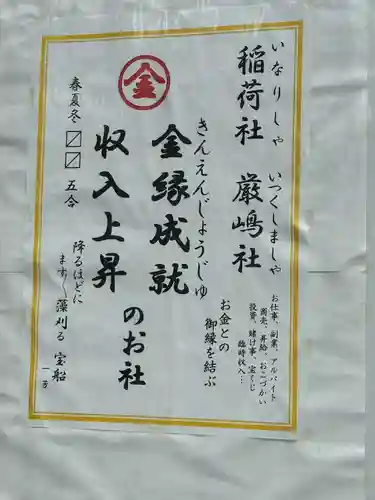 稲荷社 厳嶋社
いなりしゃ いつくしましゃ
お仕事、副業、アルバイト
商売、昇給、おこづかい
投資、賭け事、宝くじ
臨時収入…
お金との
御縁を結ぶ
金縁成就
きんえんじょうじゅ
金
収入上昇のお社
春夏冬〼〼五合
降るほどに
ます〱藻刈る宝船